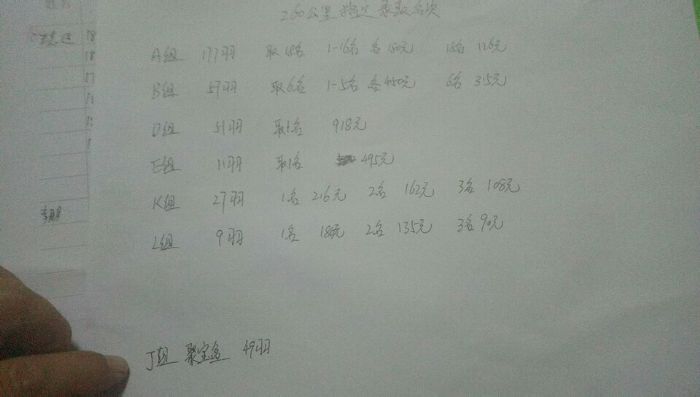 260公里指定录取名次
A组 177羽 取18名 1-16名 各180元 18名 126元
B组 57羽 取6名 1-5名 各450元 6名 315元
D组 51羽 取1名 918元
E组 11羽 取1名 495元
K组 27羽 1名 216元 2名 162元 3名 108元
L组 9羽 1名 180元 2名 135元 3名 90元
J组 聚宝盆 49羽